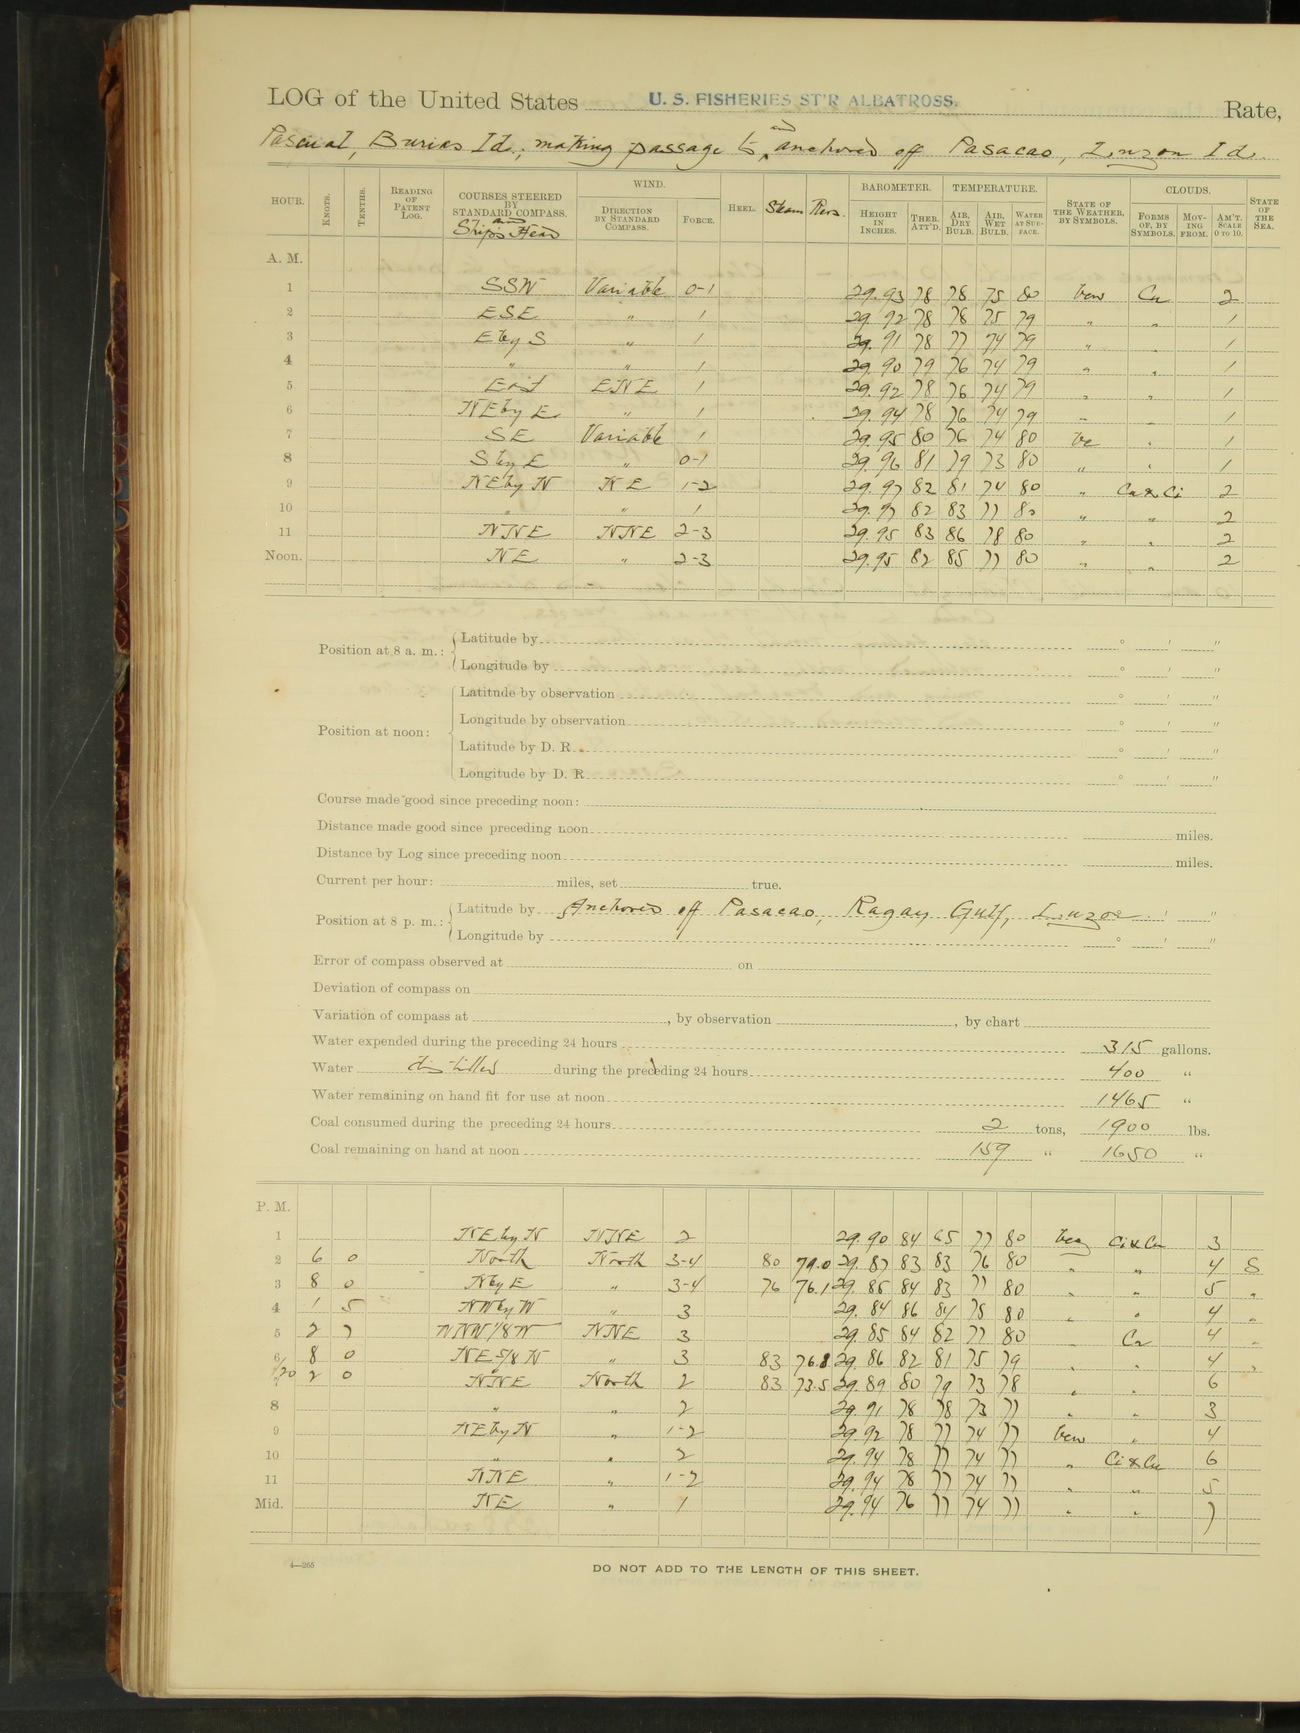 LOG of the United States U. S. FISHERIES ST'R ALBATROSS. Rate,
Pascual, Burias Id., making passage to, and anchored off Pasacao, Luzon Id.
HOUR. KNOTS. TENTHS. READING OF PATENT LOG. COURSES STEERED BY STANDARD COMPASS. and Ship's Head WIND. DIRECTION BY STANDARD COMPASS. FORCE. HEEL. Steam Revs. BAROMETER. HEIGHT IN INCHES. THER. ATT'D. TEMPERATURE. AIR, DRY BULB. AIR, WET BULB. WATER AT SURFACE. STATE OF THE WEATHER, BY SYMBOLS. CLOUDS. FORMS OF, BY SYMBOLS. MOVING FROM. AM'T. SCALE 0 TO 10. STATE OF THE SEA.
A. M.
1 SSW Variable 0-1 29.93 78 78 75 80 bcw Cu 2
2 ESE " 1 29.92 78 78 75 79 " " 1
3 E by S " 1 29.91 78 77 74 79 " " 1
4 " " 1 29.90 79 76 74 79 " " 1
5 East ENE 1 29.92 78 76 74 79 " " 1
6 NE by E " 1 29.94 78 76 74 79 " " 1
7 SE Variable 1 29.95 80 76 74 80 bc " 1
8 S by E " 0-1 29.96 81 79 73 80 " " 1
9 NE by N NE 1-2 29.97 82 81 74 80 " Cu & Ci 2
10 " " 1 29.97 82 83 77 80 " " 2
11 NNE NNE 2-3 29.95 83 86 78 80 " " 2
Noon. NE " 2-3 29.95 82 85 77 80 " " 2
Position at 8 a. m.: Latitude by ° ' "
Longitude by ° ' "
Position at noon: Latitude by observation ° ' "
Longitude by observation ° ' "
Latitude by D. R. ° ' "
Longitude by D. R. ° ' "
Course made good since preceding noon:
Distance made good since preceding noon miles.
Distance by Log since preceding noon miles.
Current per hour: miles, set true.
Position at 8 p. m.: Latitude by Anchored off Pasacao, Ragay Gulf, Luzon ' "
Longitude by ° ' "
Error of compass observed at on
Deviation of compass on
Variation of compass at , by observation , by chart
Water expended during the preceding 24 hours 315 gallons.
Water distilled during the preceding 24 hours 400 "
Water remaining on hand fit for use at noon 1465 "
Coal consumed during the preceding 24 hours 2 tons, 1900 lbs.
Coal remaining on hand at noon 159 " 1650 "
P. M.
1 NE by N NNE 2 29.90 84 65 77 80 Ci & Cu 3
2 6 0 North North 3-4 80 79.0 29.87 83 83 76 80 " " 4 S
3 8 0 N by E " 3-4 76 76.1 29.85 84 83 77 80 " " 5 "
4 1 5 NW by W " 3 29.84 86 84 78 80 " " 4 "
5 2 7 NNW 1/8 W NNE 3 29.85 84 82 77 80 Cu 4 "
6 8 0 NE 5/8 N " 3 83 76.8 29.86 82 81 75 79 " " 4 "
2 0 NNE North 2 83 73.5 29.89 80 79 73 78 " " 6
8 " " 2 29.91 78 78 73 77 " " 3
9 NE by N " 1-2 29.92 78 77 74 77 bcw " 4
10 " " 2 29.94 78 77 74 77 " Ci & Cu 6
11 NNE " 1-2 29.94 78 77 74 77 " " 5
Mid. NE " 1 29.94 76 77 74 77 " " 7
4—265
DO NOT ADD TO THE LENGTH OF THIS SHEET.